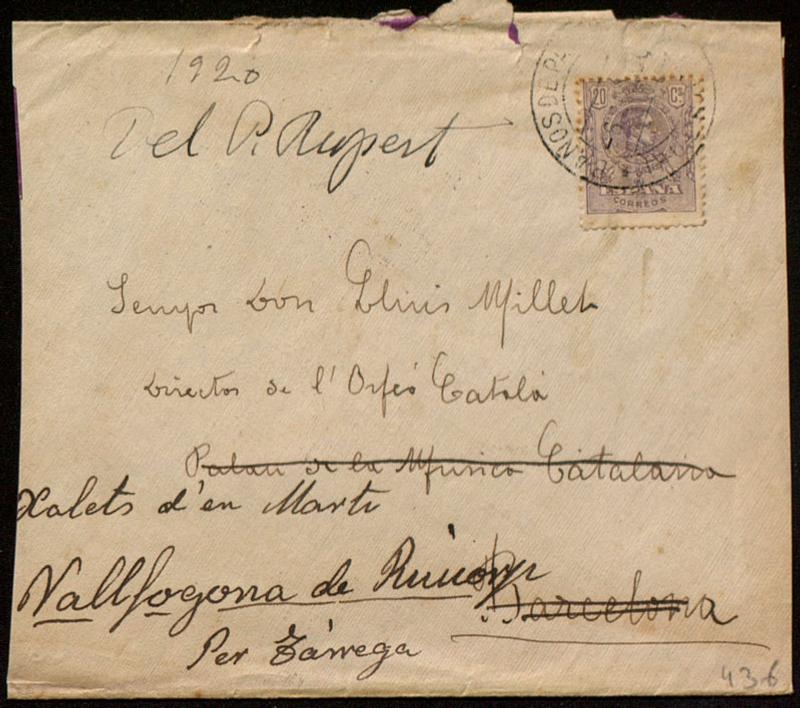 1920
Del P. Rupert
BAÑOS DE PA
20 Cs
ESPAÑA
CORREOS
Senyor Don Lluis Millet
Director de l'Orfeó Català
Palau de la Musica Catalana
Xalets d'en Marti
Vallfogona de Riucorp
Barcelona
Per Tárrega
436